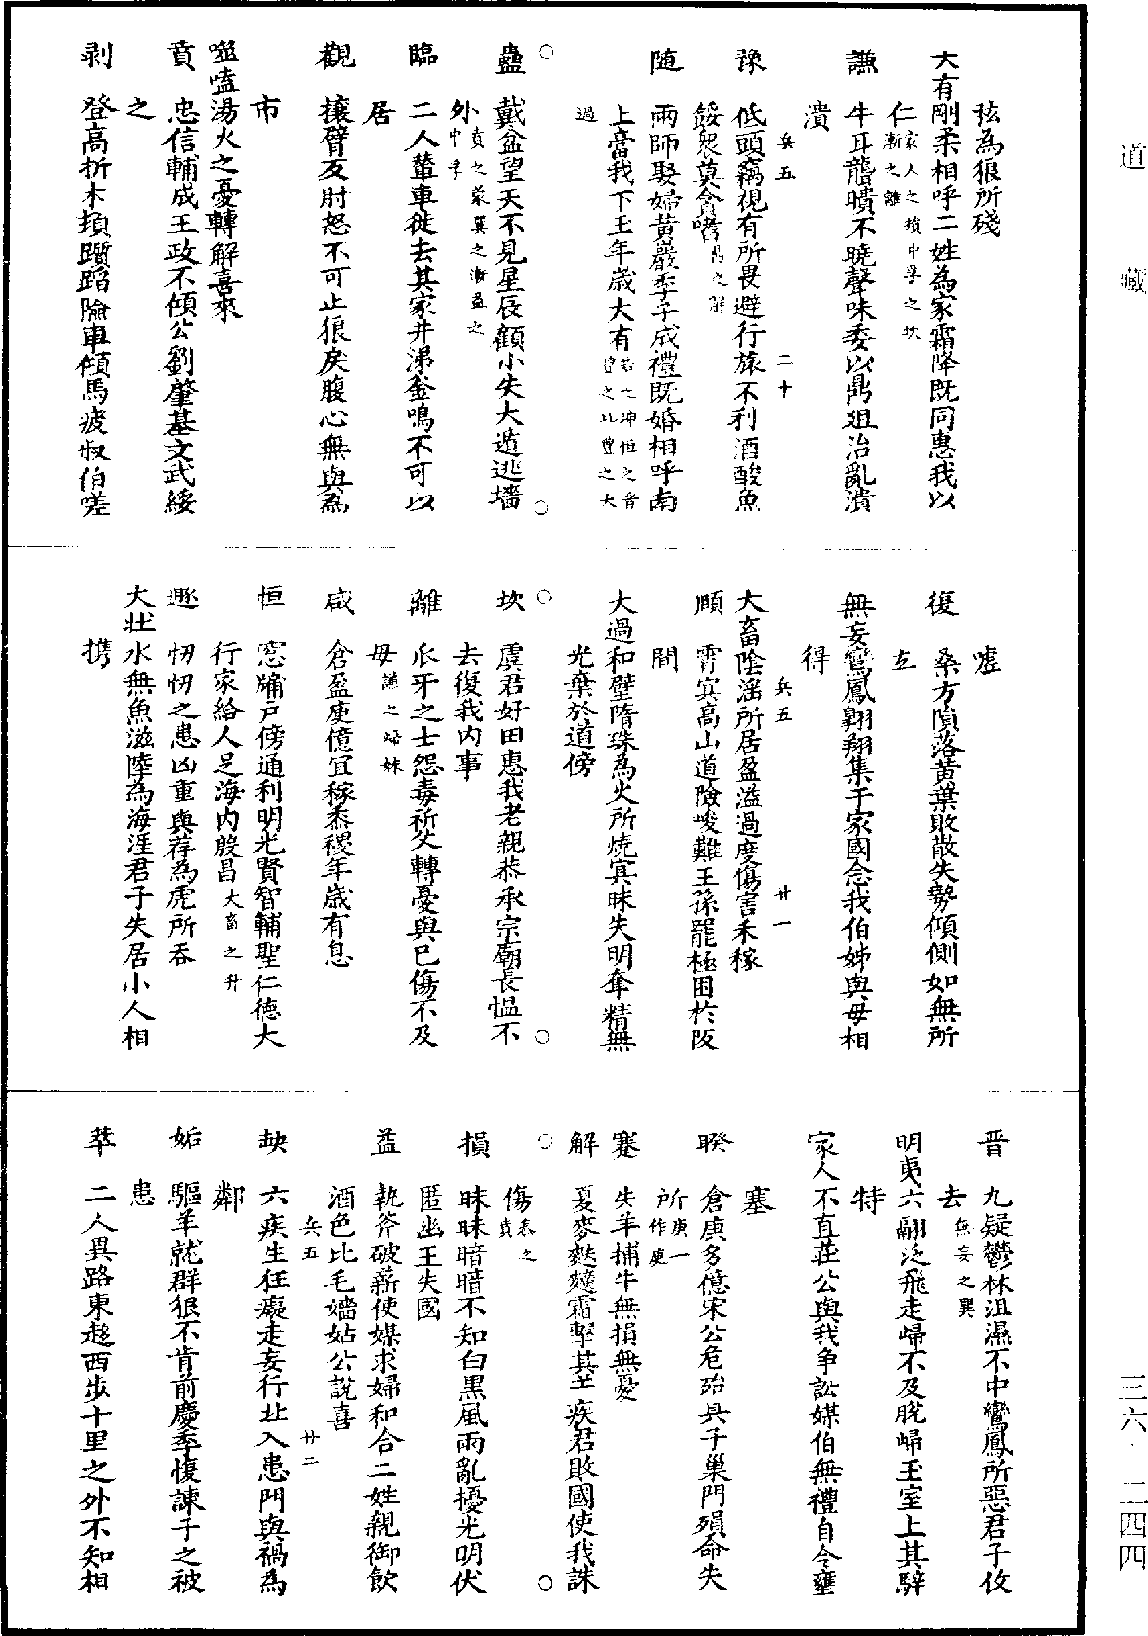 道藏
三六·二四四
弦為狼所殘
大有剛柔相呼二姓為家霜降既同惠我以
仁家人之損中孚之坎漸之離
謙 牛耳聾聵不曉聲味委以鼎俎治亂潰
潰
兵五 二十
豫 低頭竊視有所畏避行旅不利酒酸魚
餒衆莫貪嗜
随 雨師娶婦黃巖季子成禮既婚相呼南
上膏我下土年歲大有
過
蠱 戴盆望天不見星辰顧小失大遁逃墻
外
臨 二人輦車徙去其家井沸釜鳴不可以
居
觀 攘臂反肘怒不可止狼戾腹心無與為
市
噬嗑湯火之憂轉解喜來
賁 忠信輔成王政不傾公劉肇基文武綏
之
剥 登高折木損躓蹈險車傾馬疲叔伯嗟
嘘
復 桑方隕落黃葉敗散失勢傾側如無所
立
無妄鸞鳳翱翔集于家國念我伯姊與母相
得
兵五 廿一
大畜陰淫所居盈溢過度傷害禾稼
頤 霄冥高山道險峻難王孫罷極困於阪
間
大過和璧隋珠為火所燒冥昧失明奪精無
光棄於道傍
坎 虞君好田惠我老親恭承宗廟長愠不
去復我内事
離 爪牙之士怨毒祈父轉憂與已傷不及
母謙之歸妹
咸 倉盈庾億宜稼黍稷年歲有息
恒 窓牖戸傍通利明光賢智輔聖仁德大
行家給人足海内殷昌大畜之升
遯 忉忉之患凶重與荐為虎所吞
大壮水無魚滋陸為海涯君子失居小人相
携
晋 九疑鬱林沮濕不中鸞鳳所惡君子攸
去無妄之巽
明夷六翮泛飛走歸不及脫歸王室上其騂
特
家人不直莊公與我争訟媒伯無禮自令壅
塞
睽 倉庚多億宋公危殆吴子巢門殞命失
所庚一作庾
蹇 失羊捕牛無損無憂
解 夏麥䴸䵃霜擊其芒疾君敗國使我誅
傷
損 昧昧暗暗不知白黒風雨亂擾光明伏
匿幽王失國
益 執斧破薪使媒求婦和合二姓親御飲
酒色比毛嬙姑公說喜
兵五 廿二
夬 六疾生狂癡走妄行北入患門與禍為
鄰
姤 驅羊就群狠不肯前慶季愎諫子之被
患
萃 二人異路東趍西步十里之外不知相